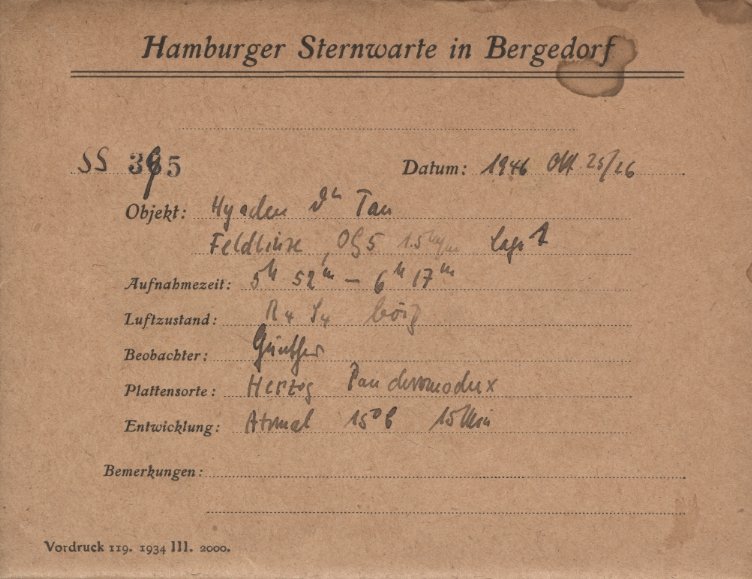 Hamburger Sternwarte in Bergedorf
SS 395 Datum: 1946 Okt 25/26
Objekt: Hyaden ϑ² Tau
Feldlinse, OG5 Lage 1
Aufnahmezeit: 5ʰ 52ᵐ – 6ʰ 17ᵐ
Luftzustand: R4 S4 böig
Beobachter: Günther
Plattensorte: Herzog Panchromodux
Entwicklung: Atomal 15°C 15 Min
Bemerkungen:
Vordruck 119. 1934 III. 2000.